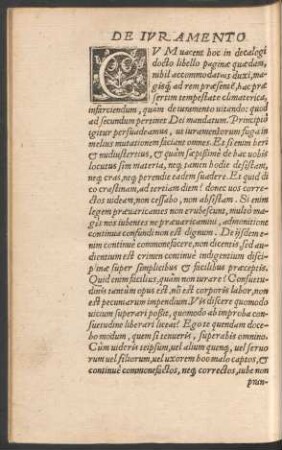 DE IVRAMENTO
CVM uacent hoc in decalogi
docto libello paginæ quædam,
nihil accommodatius duxi, ma-
gisq́; ad rem præsentē, hac præ
sertim tempestate climaterica,
inserciendum, quàm de iuramento uitando: quod
ad secundum pertinet Dei mandatum. Principiò
igitur persuadeamus, ut iuramentorum fuga in
melius mutationem faciant omnes. Etsi enim heri
& nudiustertius, & quàm sæpissimè de hac uobis
locutus sim materia, neq; tamen hodie desistam,
neq; cras, neq; perendie eadem suadere. Et quid di
co crastinam, ad tertiam diem? donec uos corre-
ctos uideam, non cessabo, non absistam. Si enim
legem præuaricantes non erubescunt, multò ma-
gis nos iubentes ne præuaricemini, admonitione
continua confundi non est dignum. De ijsdem e-
nim continuè commonefacere, non dicentis, sed au-
dientium est crimen continuè indigentium disci-
plinæ super simplicibus & facilibus præceptis.
Quid enim facilius, quàm non iurare? Consuetu-
dinis tantùm opus est, nō est corporis labor, non
est pecuniarum impendium. Vis discere quomodo
uicium superari possit, quomodo ab improba con-
suetudine liberari liceat? Ego te quendam doce-
bo modum, quem si tenueris, superabis omnino.
Cùm uideris teipsum, uel alium quenq;, uel seruo
rum uel filiorum, uel uxorem hoc malo captos, &
continuè commonefactos, neq; correctos, iube non